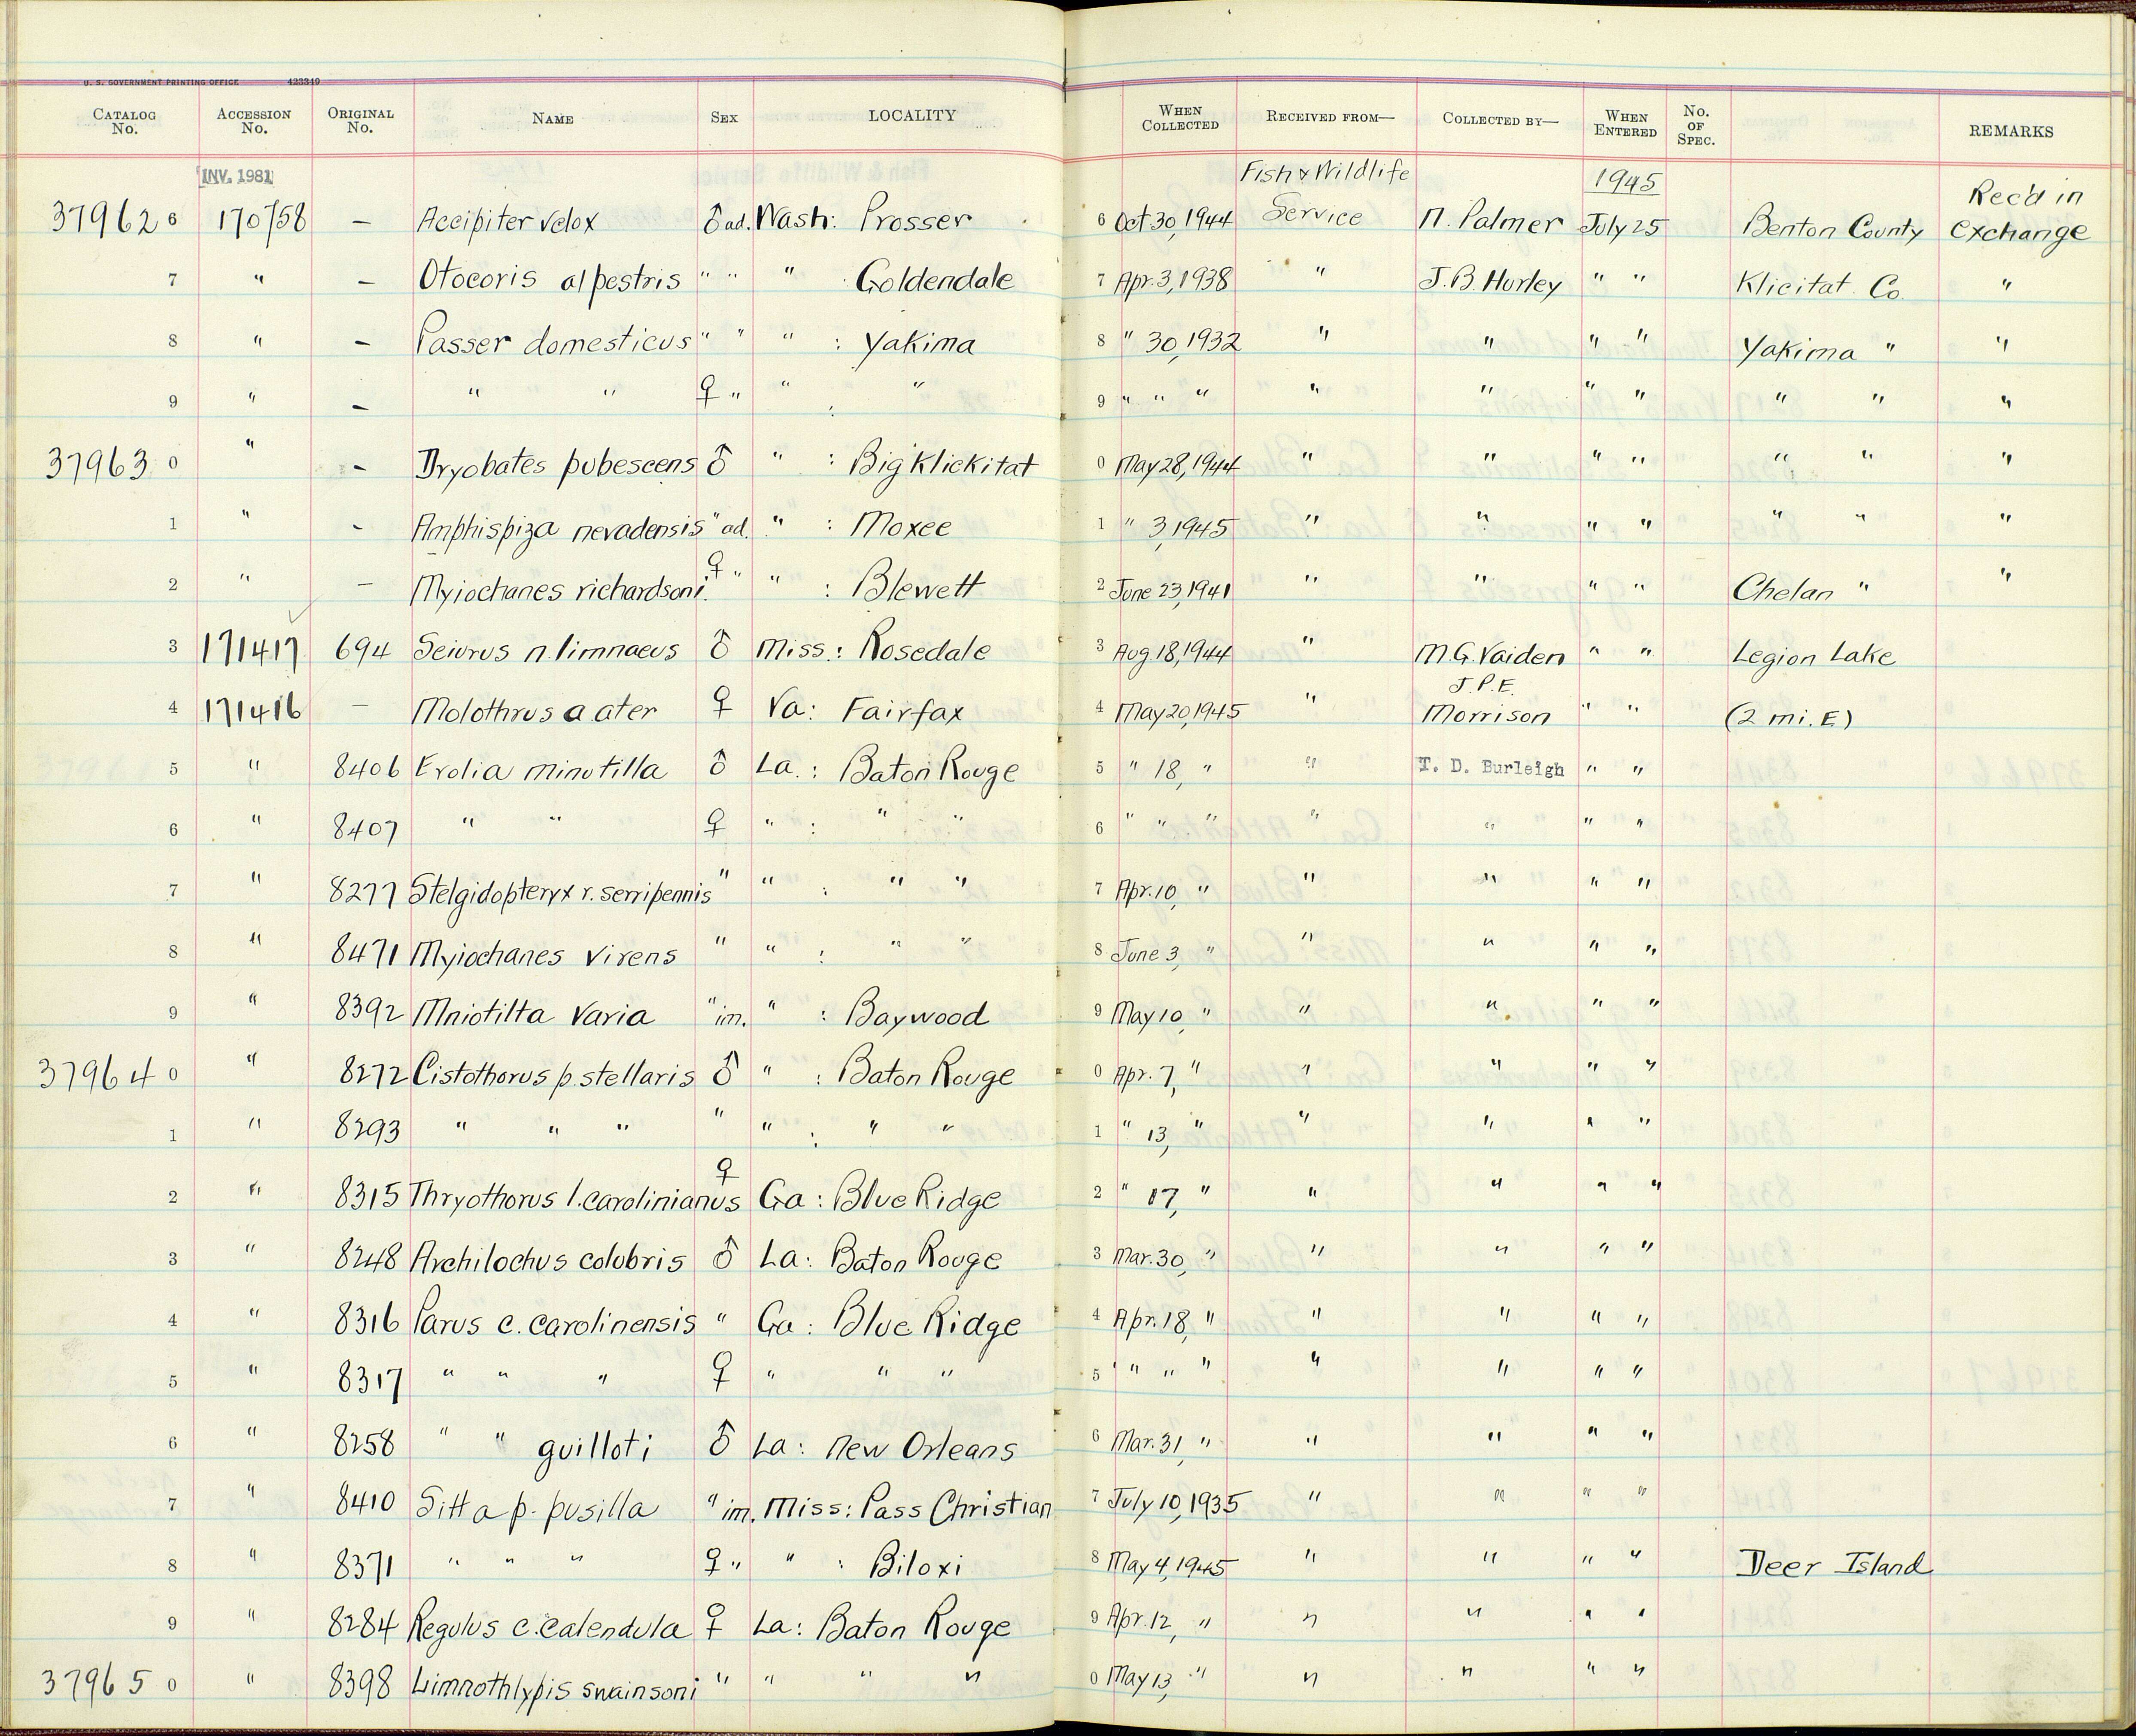 U. S. GOVERNMENT PRINTING OFFICE 423349
CATALOG No. ACCESSION No. ORIGINAL No. NAME SEX LOCALITY WHEN COLLECTED RECEIVED FROM— COLLECTED BY— WHEN ENTERED No. OF SPEC. REMARKS
INV. 1981 Fish & Wildlife 1945 Rec'd in
37962 6 170758 — Accipiter velox ♂ ad. Wash: Prosser 6 Oct 30, 1944 Service N. Palmer July 25 Benton County exchange
7 " — Otocoris alpestris " " " Goldendale 7 Apr. 3, 1938 " J.B. Hurley " " Klicitat Co. "
8 " — Passer domesticus " " " : Yakima 8 " 30, 1932 " " " " Yakima " "
9 " — " " ♀ " " : " 9 " " " " " " " " " "
37963 0 " — Dryobates pubescens ♂ " : Big Klickitat 0 May 28, 1944 " " " " " " "
1 " - Amphispiza nevadensis " ad. " : Moxee 1 " 3, 1945 " " " " " " "
2 " — Myiochanes richardsoni. ♀ " " : Blewett 2 June 23, 1941 " " " " Chelan " "
3 171417 694 Seiurus n. limnaeus ♂ Miss.: Rosedale 3 Aug. 18, 1944 " M.G. Vaiden " " Legion Lake
4 171416 — Molothrus a. ater ♀ Va: Fairfax 4 May 20, 1945 " J.P.E. Morrison " " (2 mi. E)
5 " 8406 Erolia minutilla ♂ La.: Baton Rouge 5 " 18, " " T. D. Burleigh " "
6 " 8407 " " ♀ " : " " 6 " " " " " " "
7 " 8277 Stelgidopteryx r. serripennis " " : " " 7 Apr. 10, " " " " "
8 " 8471 Myiochanes virens " " : " " 8 June 3, " " " " "
9 " 8392 Mniotilta varia " im. " : Baywood 9 May 10, " " " " "
37964 0 " 8272 Cistothorus p. stellaris ♂ " : Baton Rouge 0 Apr. 7, " " " " "
1 " 8293 " " " " " : " " 1 " 13, " " " " "
2 " 8315 Thryothorus l. carolinianus ♀ Ga : Blue Ridge 2 " 17, " " " " "
3 " 8248 Archilochus colubris ♂ La: Baton Rouge 3 Mar. 30, " " " " "
4 " 8316 Parus c. carolinensis " Ga : Blue Ridge 4 Apr. 18, " " " " "
5 " 8317 " " " ♀ " " " 5 " " " " " " "
6 " 8258 " " guilloti ♂ La: New Orleans 6 Mar. 31, " " " " "
7 " 8410 Sitta p. pusilla " im. Miss: Pass Christian 7 July 10, 1935 " " " "
8 " 8371 " " " ♀ " " : Biloxi 8 May 4, 1945 " " " " Deer Island
9 " 8284 Regulus c. calendula ♀ La: Baton Rouge 9 Apr. 12, " " " " "
37965 0 " 8398 Limnothlypis swainsoni " " " " 0 May 13, " " " " "